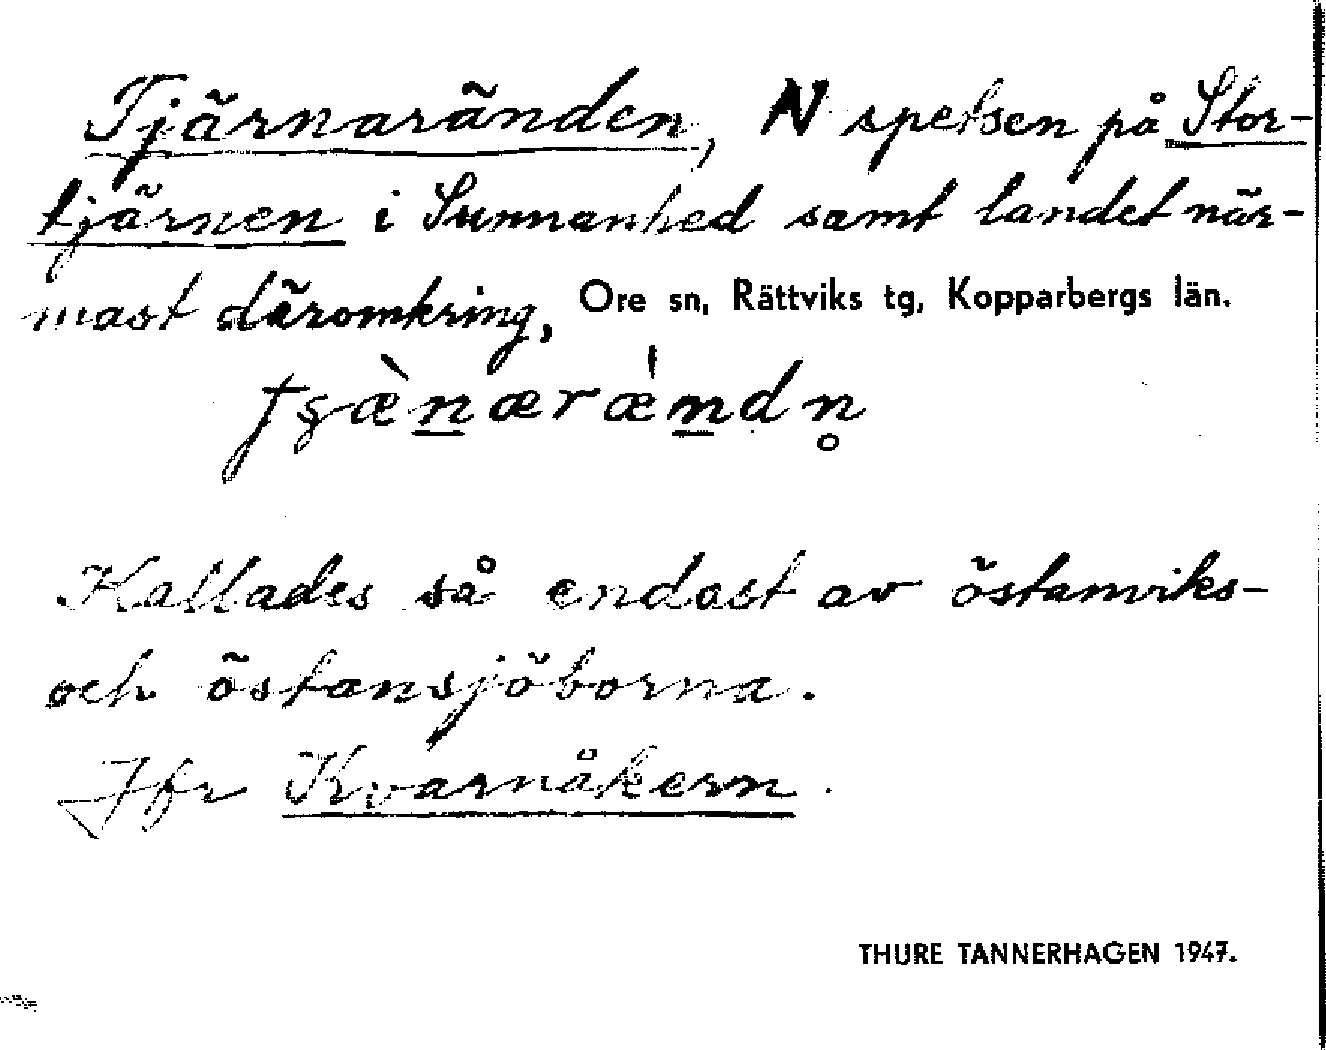 Tjärnaränden, N spetsen på Stor-
tjärnen i Sunnanhed samt landet när-
mast däromkring, Ore sn, Rättviks tg, Kopparbergs län.
Kallades så endast av östanviks-
och östansjöborna.
Jfr Kvarnåkern.
THURE TANNERHAGEN 1947.